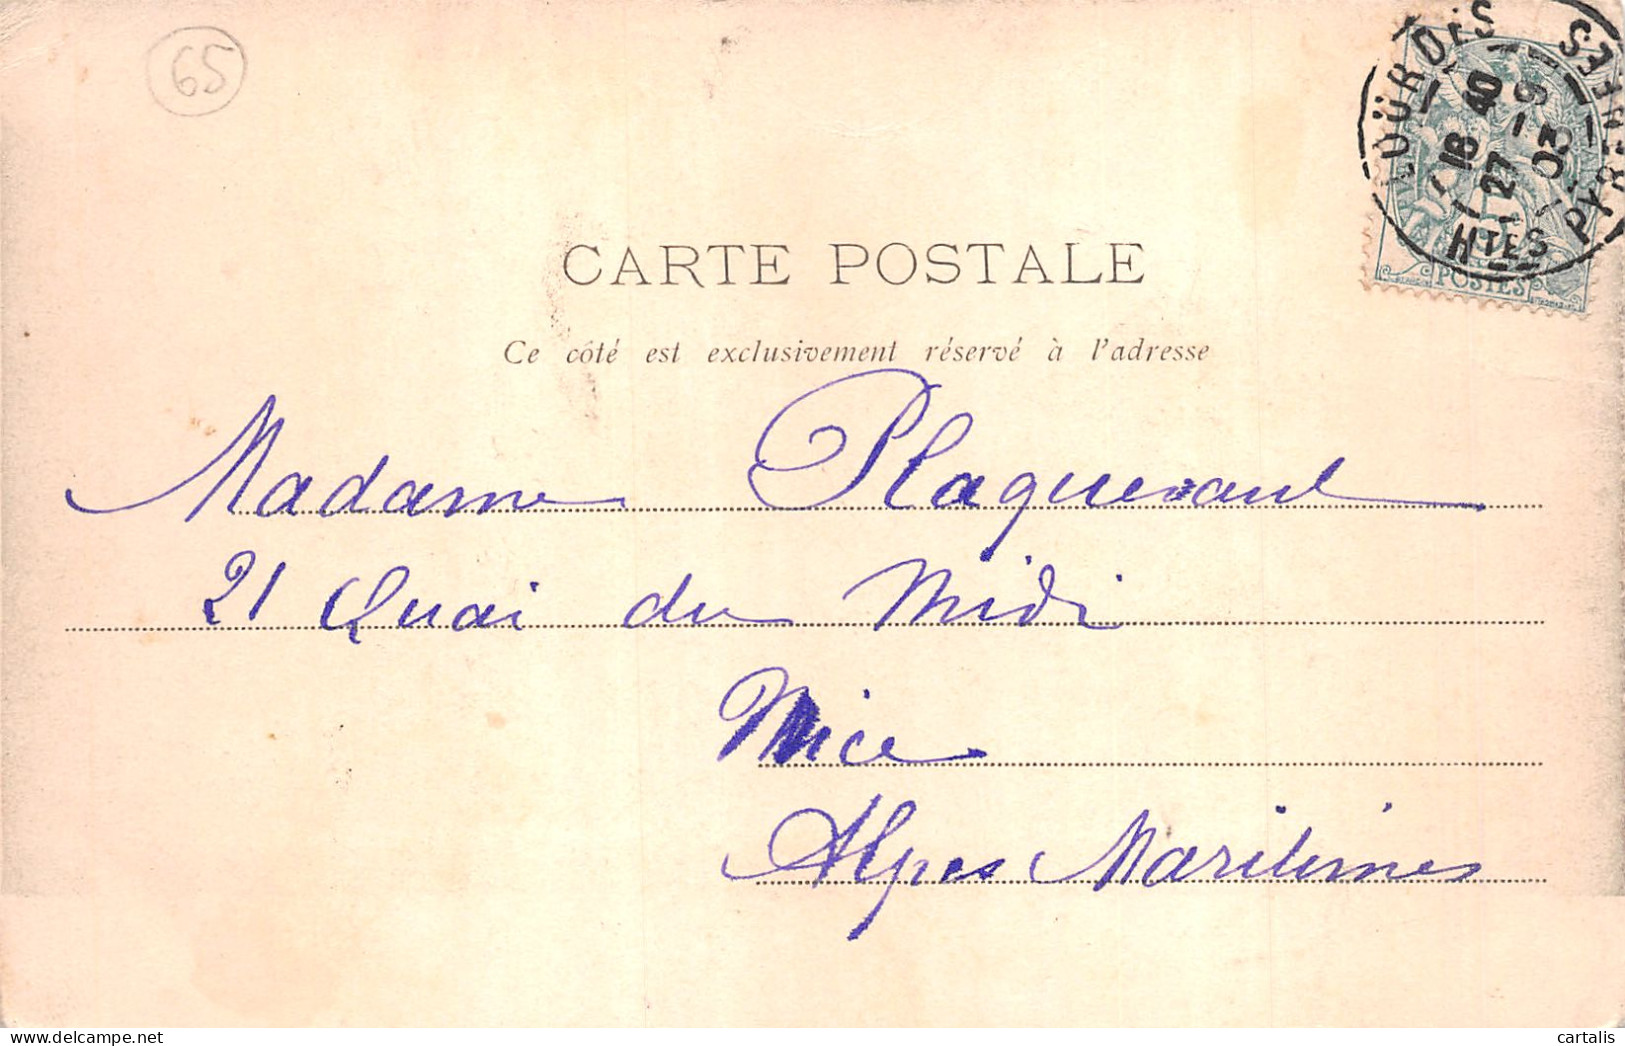 65
LOURDES
18 40
27 -9
03
HTES PYRENEES
POSTES
CARTE POSTALE
Ce côté est exclusivement réservé à l'adresse
Madame
21 Quai du Midi
Nice
Alpes Maritimes
cartalis
delcampe.net